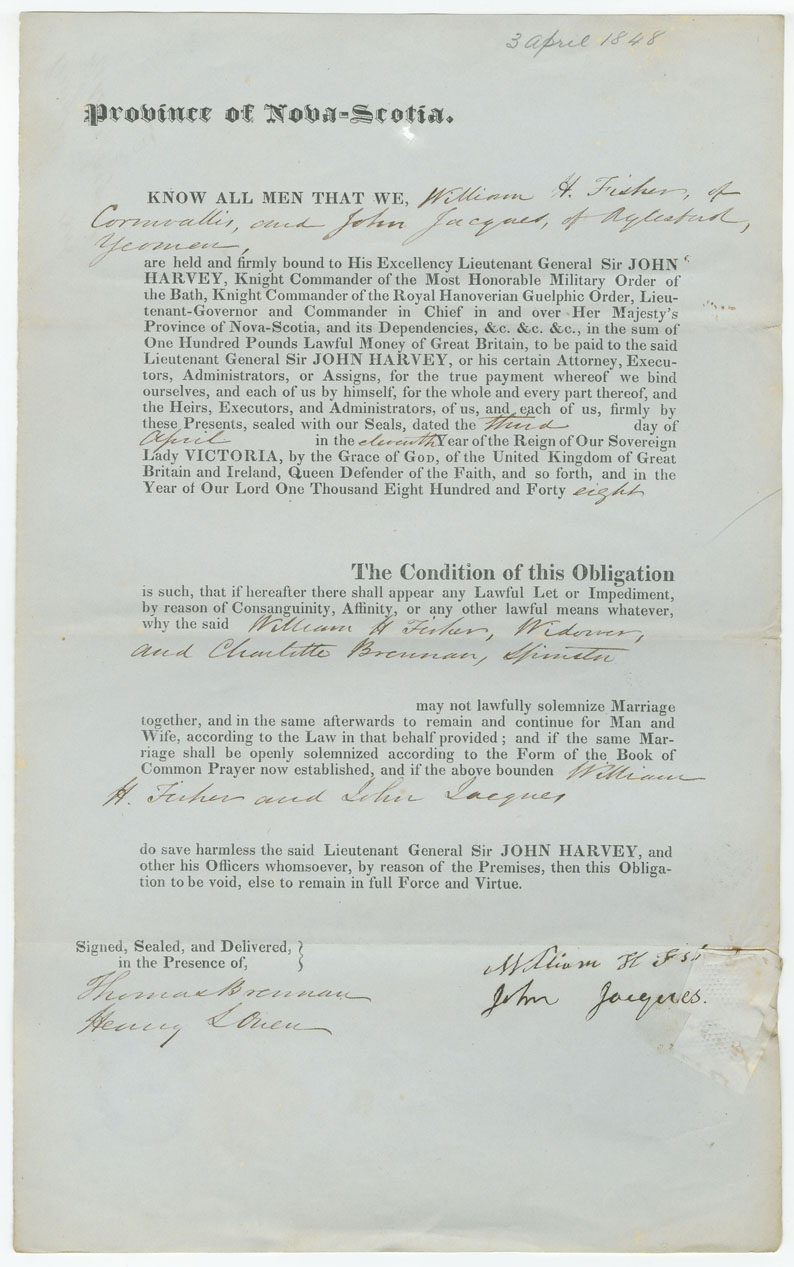 3 april 1848
Province of Nova-Scotia.
KNOW ALL MEN THAT WE, William H. Fisher, of
Cornwallis, and John Jacques, of Aylesford,
Yeomen,
are held and firmly bound to His Excellency Lieutenant General Sir JOHN
HARVEY, Knight Commander of the Most Honorable Military Order of
the Bath, Knight Commander of the Royal Hanoverian Guelphic Order, Lieu-
tenant-Governor and Commander in Chief in and over Her Majesty's
Province of Nova-Scotia, and its Dependencies, &c. &c. &c., in the sum of
One Hundred Pounds Lawful Money of Great Britain, to be paid to the said
Lieutenant General Sir JOHN HARVEY, or his certain Attorney, Execu-
tors, Administrators, or Assigns, for the true payment whereof we bind
ourselves, and each of us by himself, for the whole and every part thereof, and
the Heirs, Executors, and Administrators, of us, and each of us, firmly by
these Presents, sealed with our Seals, dated the third day of
April in the eleventh Year of the Reign of Our Sovereign
Lady VICTORIA, by the Grace of GOD, of the United Kingdom of Great
Britain and Ireland, Queen Defender of the Faith, and so forth, and in the
Year of Our Lord One Thousand Eight Hundred and Forty eight
The Condition of this Obligation
is such, that if hereafter there shall appear any Lawful Let or Impediment,
by reason of Consanguinity, Affinity, or any other lawful means whatever,
why the said William H Fisher, Widower,
and Charlotte Brennan, Spinster
may not lawfully solemnize Marriage
together, and in the same afterwards to remain and continue for Man and
Wife, according to the Law in that behalf provided; and if the same Mar-
riage shall be openly solemnized according to the Form of the Book of
Common Prayer now established, and if the above bounden William
H. Fisher and John Jacques
do save harmless the said Lieutenant General Sir JOHN HARVEY, and
other his Officers whomsoever, by reason of the Premises, then this Obliga-
tion to be void, else to remain in full Force and Virtue.
Signed, Sealed, and Delivered,
in the Presence of,
William H
John Jacques.
Thomas Brennan
Henry L Owen